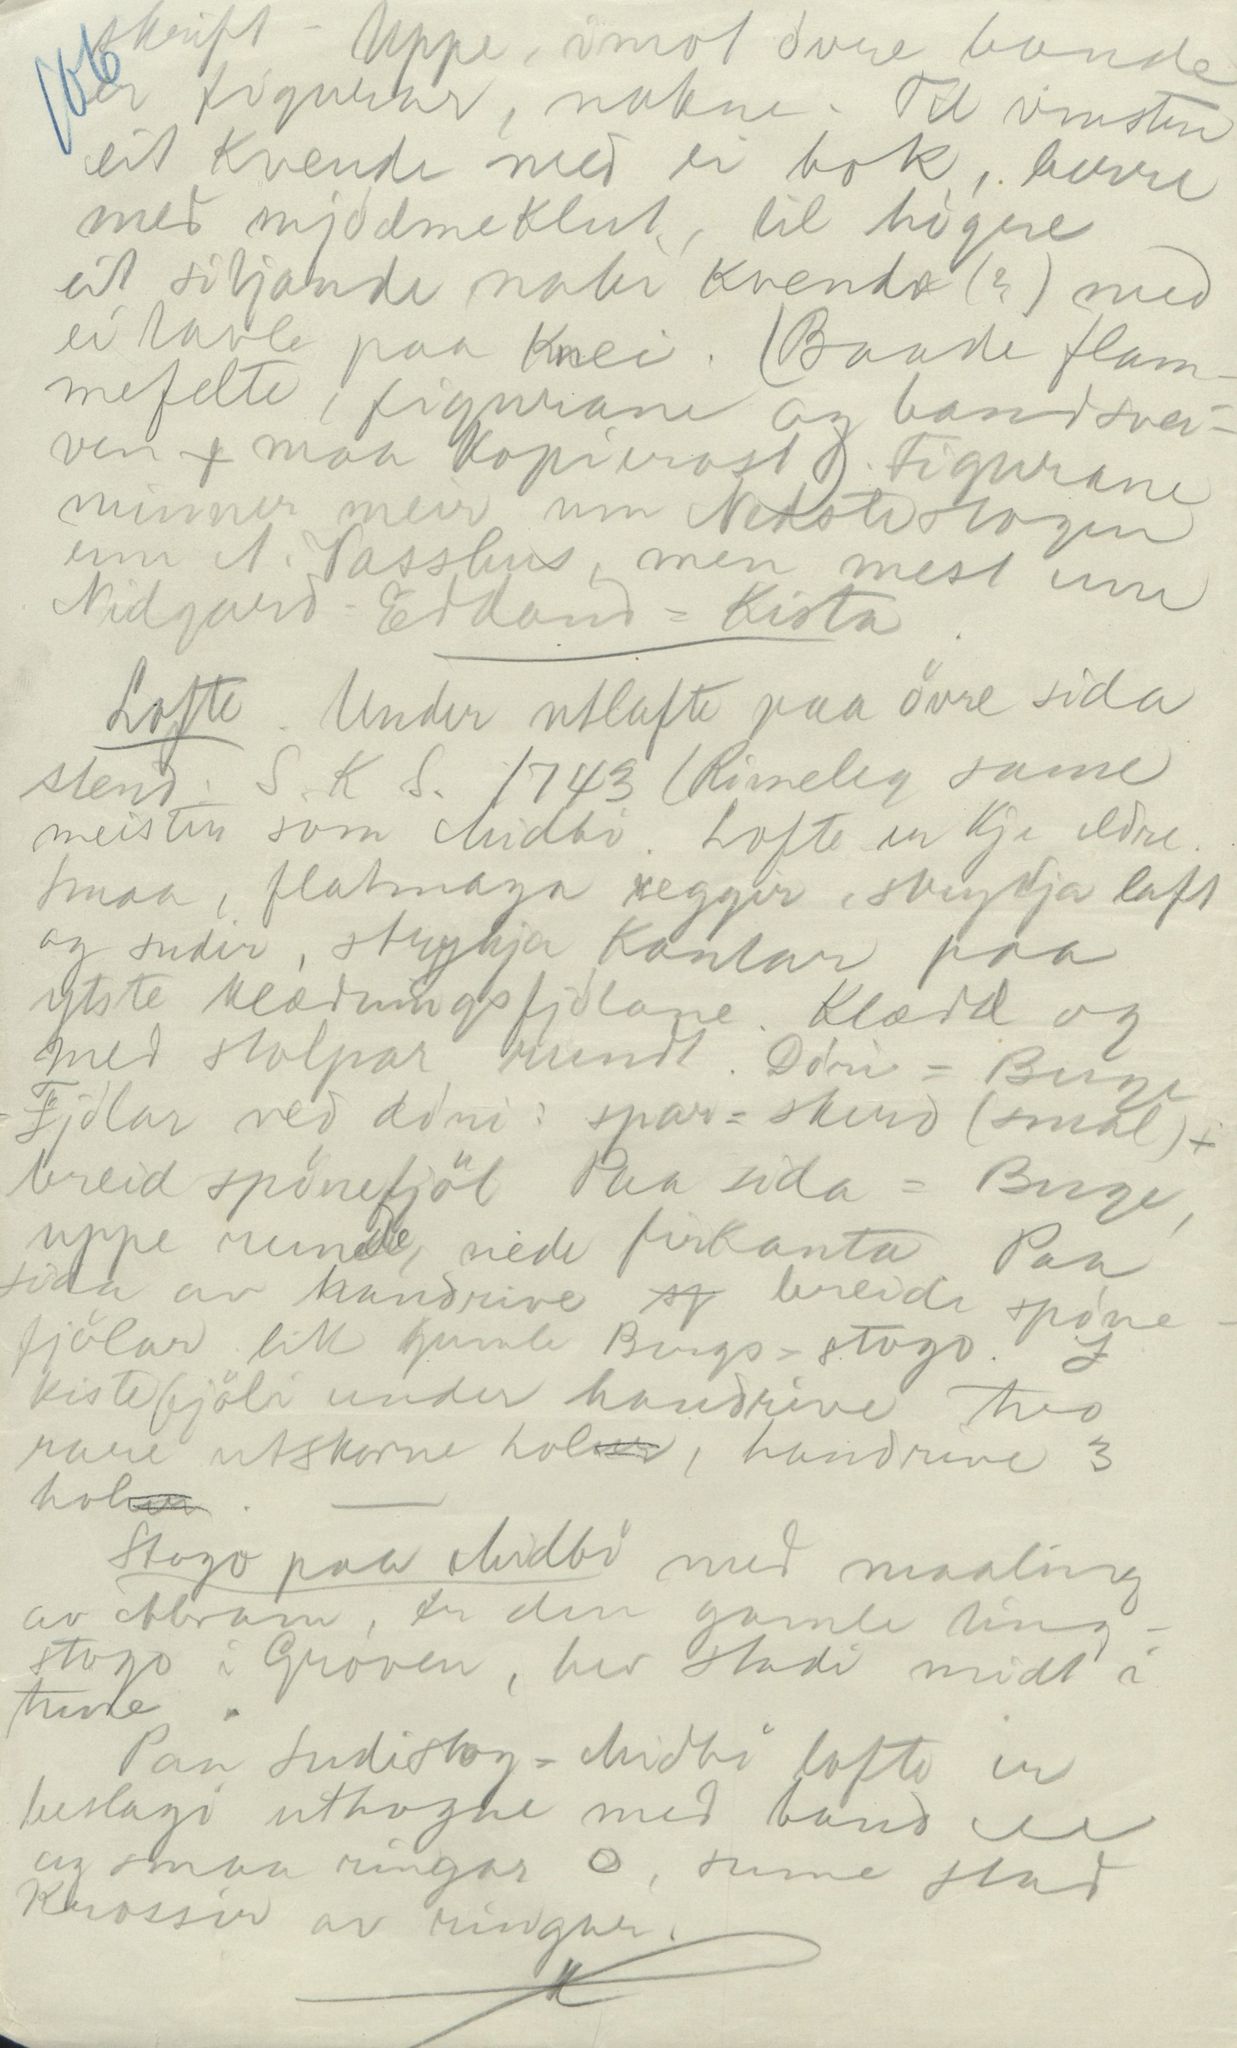 106
skrift - Uppe, imot övre bande
er figurar, nakne. Til vinstre
eit Kvende med ei bok, berre
med mjødmeklut, til högere
eit sitjande naki Kvende (?) med
ei tavle paa Knei. (Baade flam-
mefelte, figurane og bandsvei-
ven + maa Kopierast). Figurane
minner meir um Nedstestogen
enn N. Vasshus, men mest um
Nidgard-Eddand = Kista.
Lofte. Under utlafte paa övre sida
stend: S. K S. 1743 (Rimeleg same
meister som Midbö. Lofte er Kje eldre.
Smaa, flatmaga veggir, strykja laft
og sudir, strykja Kantar paa
ytste klædningsfjölane. Klædd og
med stolpar rundt. Döri = Berge
Fjölar ved döri: spar = skurd (smal) +
breid spönefjöl Paa sida = Berge,
uppe runde, nede firkanta. Paa
sida av handrive breide spöne-
fjölar lik gamle Bergs = stogo. I
kistefjöli under handrive tvo
rare utskorne hol, handrive 3
hol.
Stogo paa Midbö med maaling
av Abram, er den gamle ting-
stogo i Gröven, hev stadi midt i
tune.
Paa Sudistog = Midbö lofte er
beslagi uthogne med band
og smaa ringar O, sume stad
Krossir av ringar.